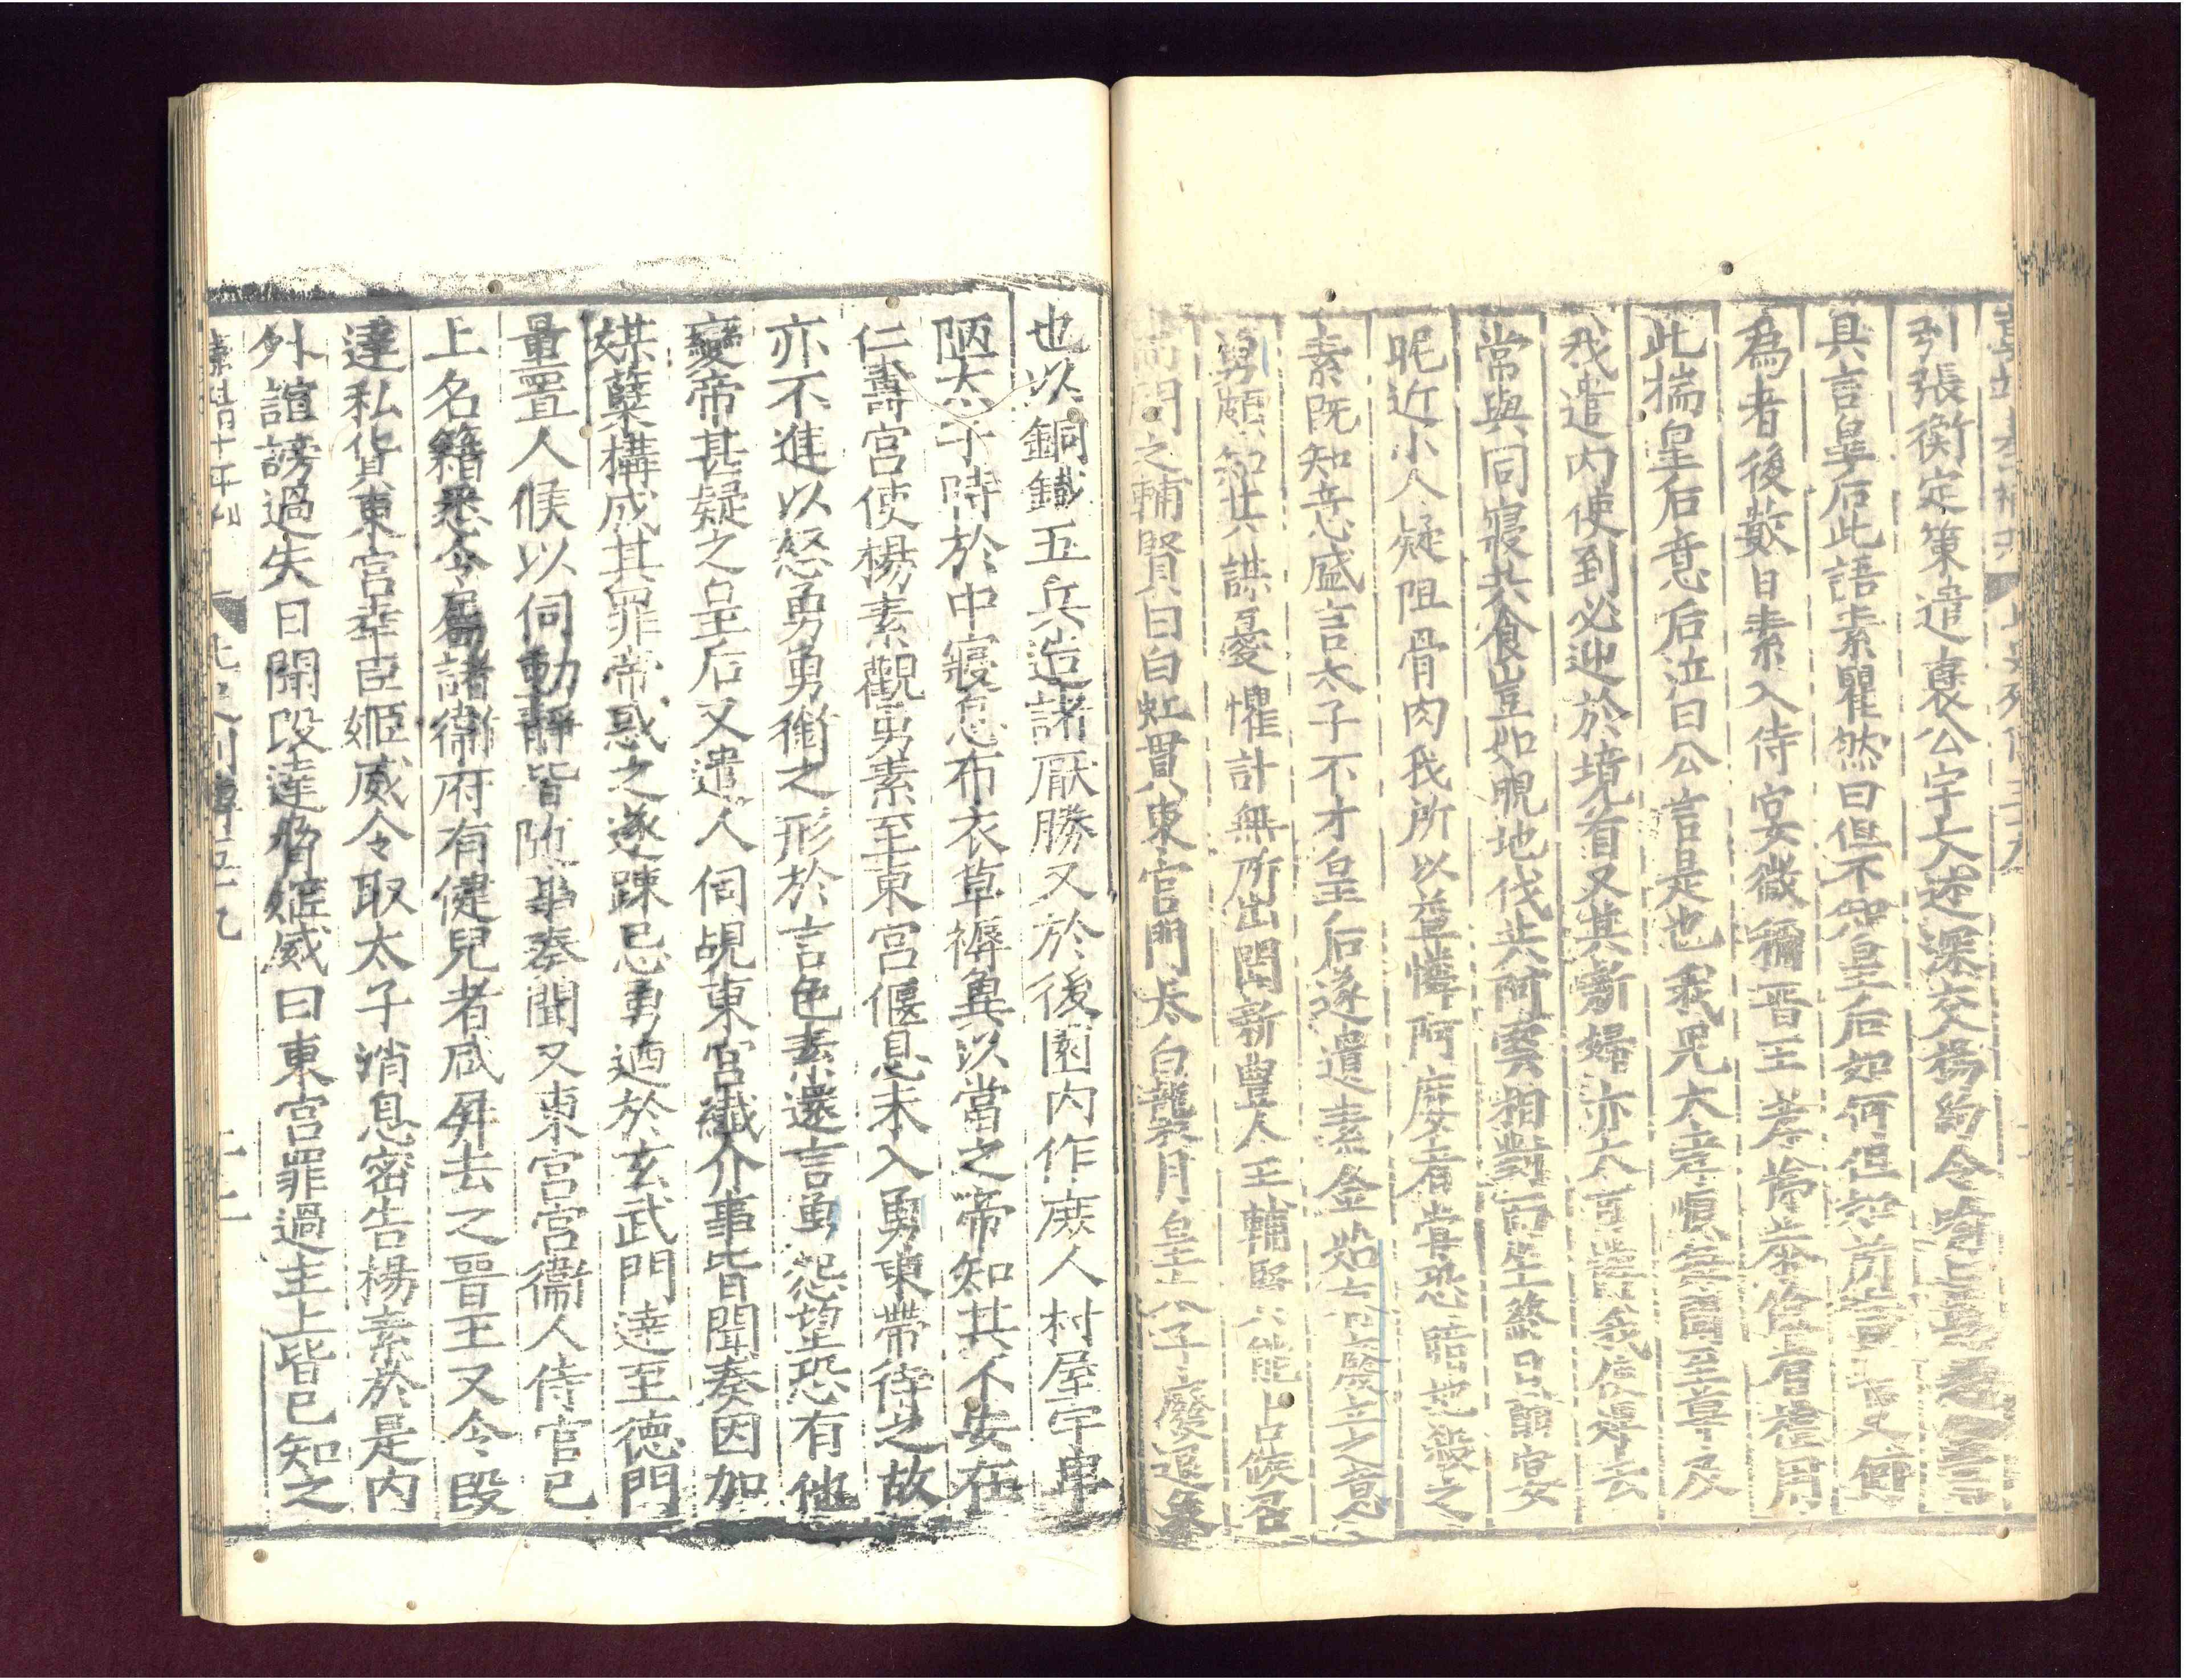 引張衡定策遣襃公宇文述深交楊約令喻
具言皇后此語素瞿然曰但不知皇后如何但如所言
為者後數日素入侍宴微稱晋王孝悌恭儉有禮用
此揣皇后意后泣曰公言是也我兒大孝順每聞至尊及
我遣内使到必迎於境首又其新婦亦大可憐我使婢去
常與同寢共食豈如睍地伐共阿雲相對而坐終日酣宴
昵近小人疑阻骨肉我所以益憐阿㜷者常恐暗地殺之
素既知意盛言太子不才皇后遂遺素金始有廢立之意
勇頗知其謀憂懼計無所出聞新豊人王輔賢能占候召
而問之輔賢曰白虹貫東宮門太白襲月皇太子廢退象
也以銅鐵五兵造諸厭勝又於後園内作庻人村屋宇卑
陋太子時於中寢息布衣草褥冀以當之帝知其不安在
仁壽宮使楊素觀勇素至東宮偃息未入勇束帶待之故
亦不進以怒勇勇銜之形於言色素還言勇怨望恐有他
變帝甚疑之皇后又遣人伺覘東宮纎介事皆聞奏因加
媒蘖構成其罪帝惑之遂踈忌勇廼於玄武門達至德門
量置人候以伺動静皆隨事奏聞又東宮宮衞人侍官已
上名籍悉令屬諸衞府有健兒者咸屏去之晉王又令段
達私貨東宮幸臣姬威令取太子消息密告楊素於是内
外諠謗過失日聞段達脅姬威曰東宮罪過主上皆已知之